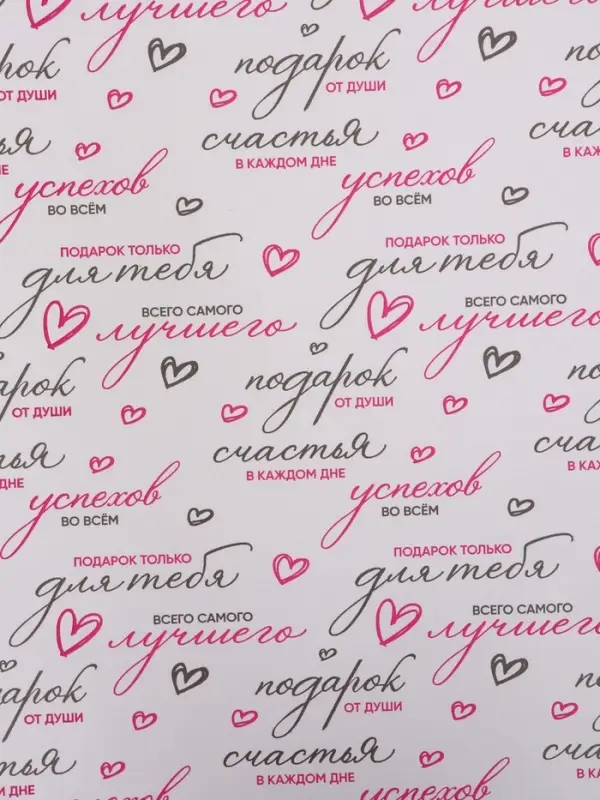 лучшего
подарок
ОТ ДУШИ
подарок
ОТ ДУШИ
счастья
В КАЖДОМ ДНЕ
успехов
ВО ВСЁМ
успехов
ВО ВСЁМ
ПОДАРОК ТОЛЬКО
для тебя
ПОДАРОК ТОЛЬКО
для тебя
ВСЕГО САМОГО
лучшего
ВСЕГО САМОГО
лучшего
подарок
ОТ ДУШИ
подарок
ОТ ДУШИ
счастья
В КАЖДОМ ДНЕ
успехов
ВО ВСЁМ
успехов
ВО ВСЁМ
ПОДАРОК ТОЛЬКО
для тебя
ПОДАРОК ТОЛЬКО
для тебя
ВСЕГО САМОГО
лучшего
ВСЕГО САМОГО
лучшего
подарок
ОТ ДУШИ
подарок
ОТ ДУШИ
счастья
В КАЖДОМ ДНЕ
успехов
успехов